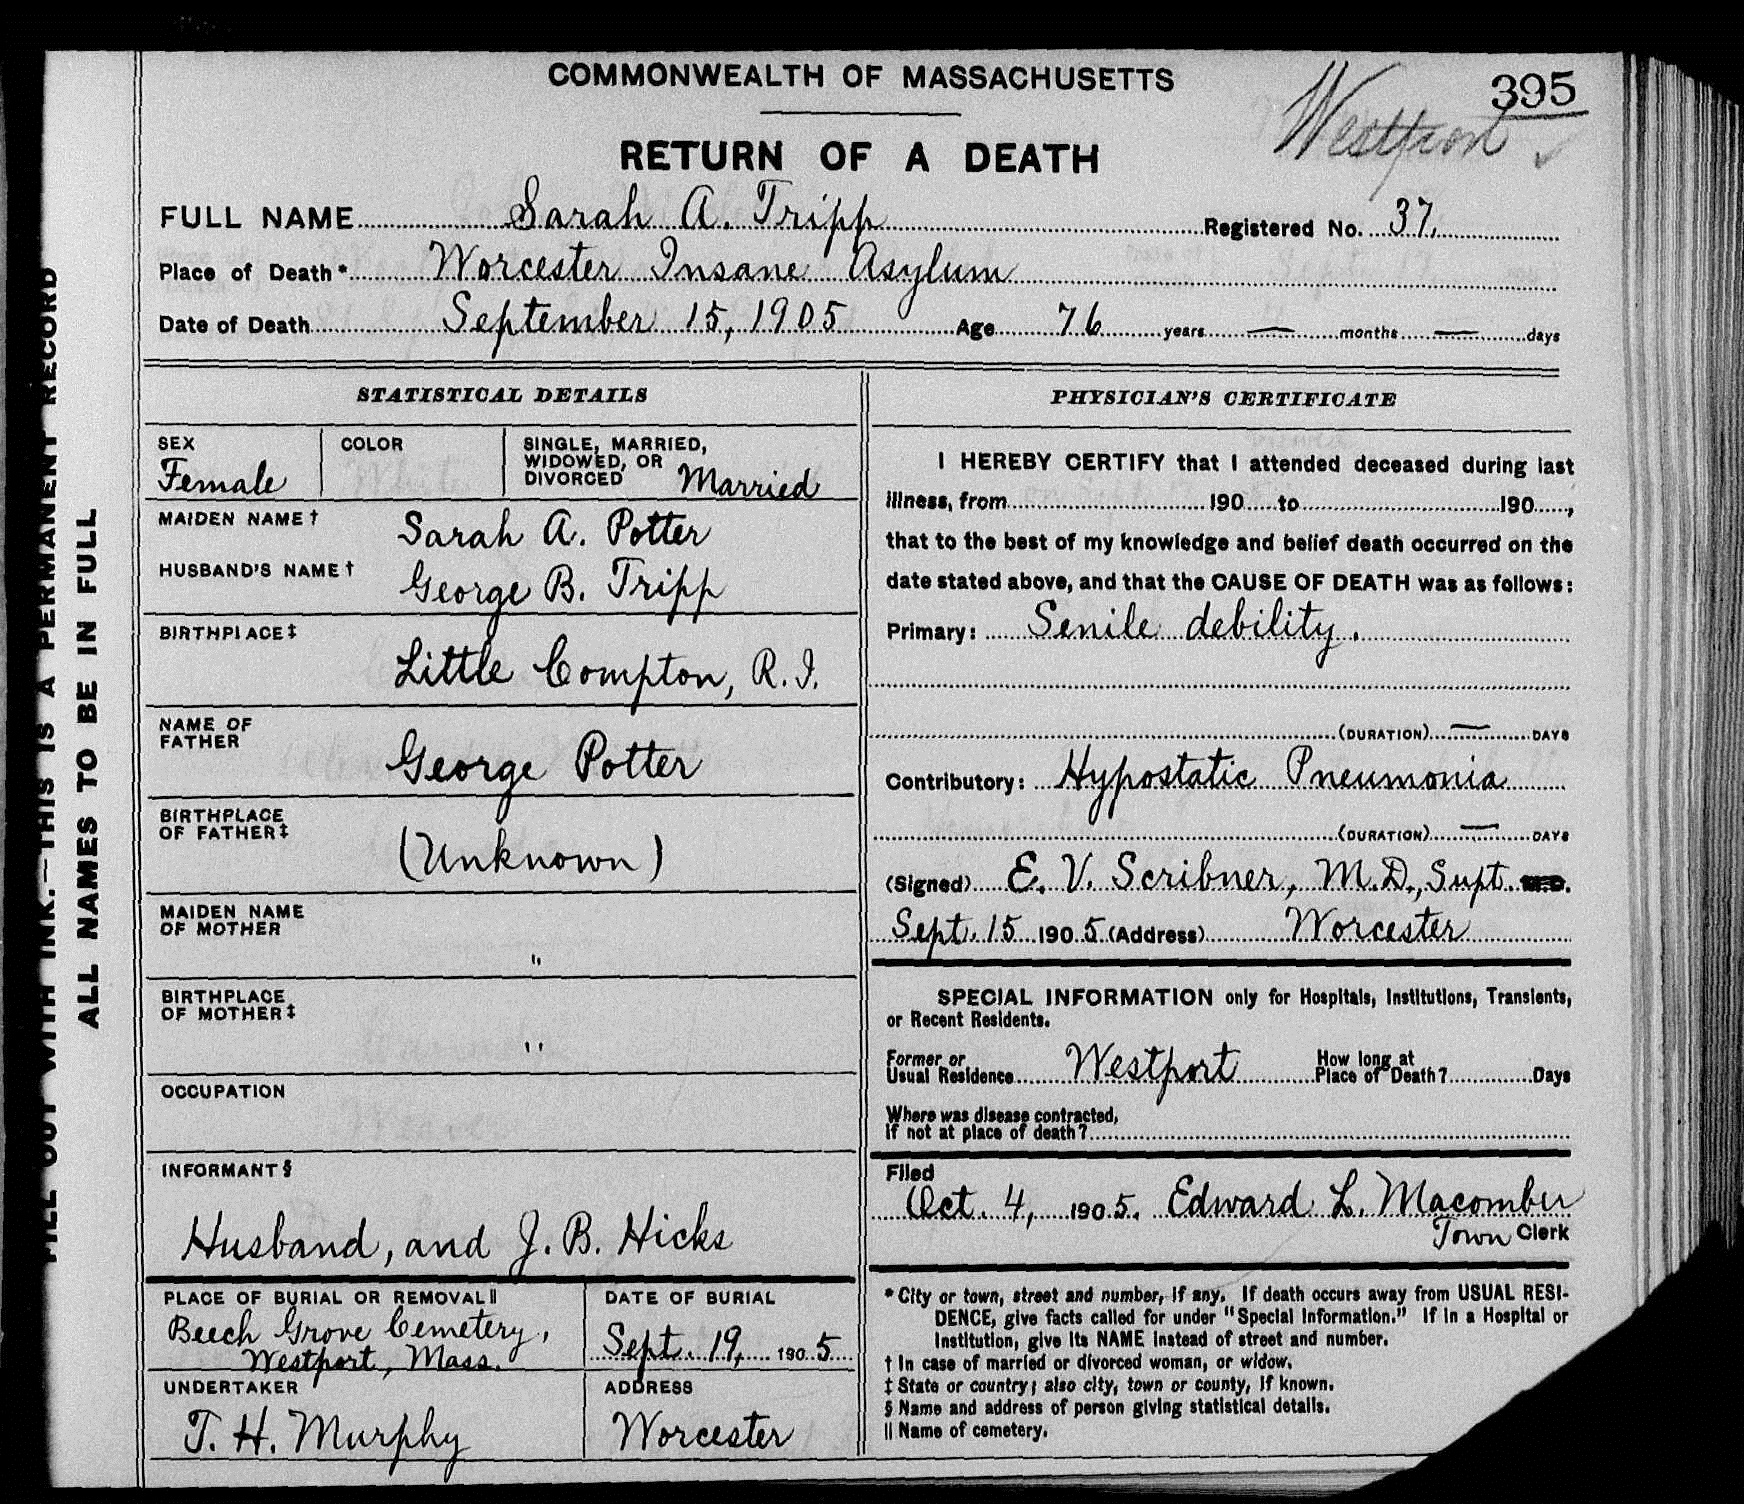 COMMONWEALTH OF MASSACHUSETTS
395
Westport
RETURN OF A DEATH
FULL NAME Sarah A. Tripp Registered No. 37.
Place of Death* Worcester Insane Asylum
Date of Death September 15, 1905 Age 76 years — months — days
FILL OUT WITH INK.—THIS IS A PERMANENT RECORD
ALL NAMES TO BE IN FULL
STATISTICAL DETAILS
SEX
Female
COLOR
SINGLE, MARRIED,
WIDOWED, OR
DIVORCED Married
MAIDEN NAME† Sarah A. Potter
HUSBAND'S NAME† George B. Tripp
BIRTHPLACE‡
Little Compton, R.I.
NAME OF
FATHER
George Potter
BIRTHPLACE
OF FATHER‡
(Unknown)
MAIDEN NAME
OF MOTHER
"
BIRTHPLACE
OF MOTHER‡
"
OCCUPATION
INFORMANT§
Husband, and J. B. Hicks
PLACE OF BURIAL OR REMOVAL||
Beech Grove Cemetery,
Westport, Mass.
DATE OF BURIAL
Sept. 19, 1905
UNDERTAKER
T. H. Murphy
ADDRESS
Worcester
PHYSICIAN'S CERTIFICATE
I HEREBY CERTIFY that I attended deceased during last
illness, from 190 to 190 ,
that to the best of my knowledge and belief death occurred on the
date stated above, and that the CAUSE OF DEATH was as follows:
Primary: Senile debility.
(DURATION) — DAYS
Contributory: Hypostatic Pneumonia
(DURATION) — DAYS
(Signed) E. V. Scribner, M.D., Supt. M.D.
Sept. 15 1905 (Address) Worcester
SPECIAL INFORMATION only for Hospitals, Institutions, Transients,
or Recent Residents.
Former or
Usual Residence Westport
How long at
Place of Death? Days
Where was disease contracted,
if not at place of death?
Filed
Oct. 4, 1905. Edward L. Macomber
Town Clerk
*City or town, street and number, if any. If death occurs away from USUAL RESI-
DENCE, give facts called for under "Special Information." If in a Hospital or
Institution, give its NAME instead of street and number.
† In case of married or divorced woman, or widow.
‡ State or country; also city, town or county, if known.
§ Name and address of person giving statistical details.
|| Name of cemetery.